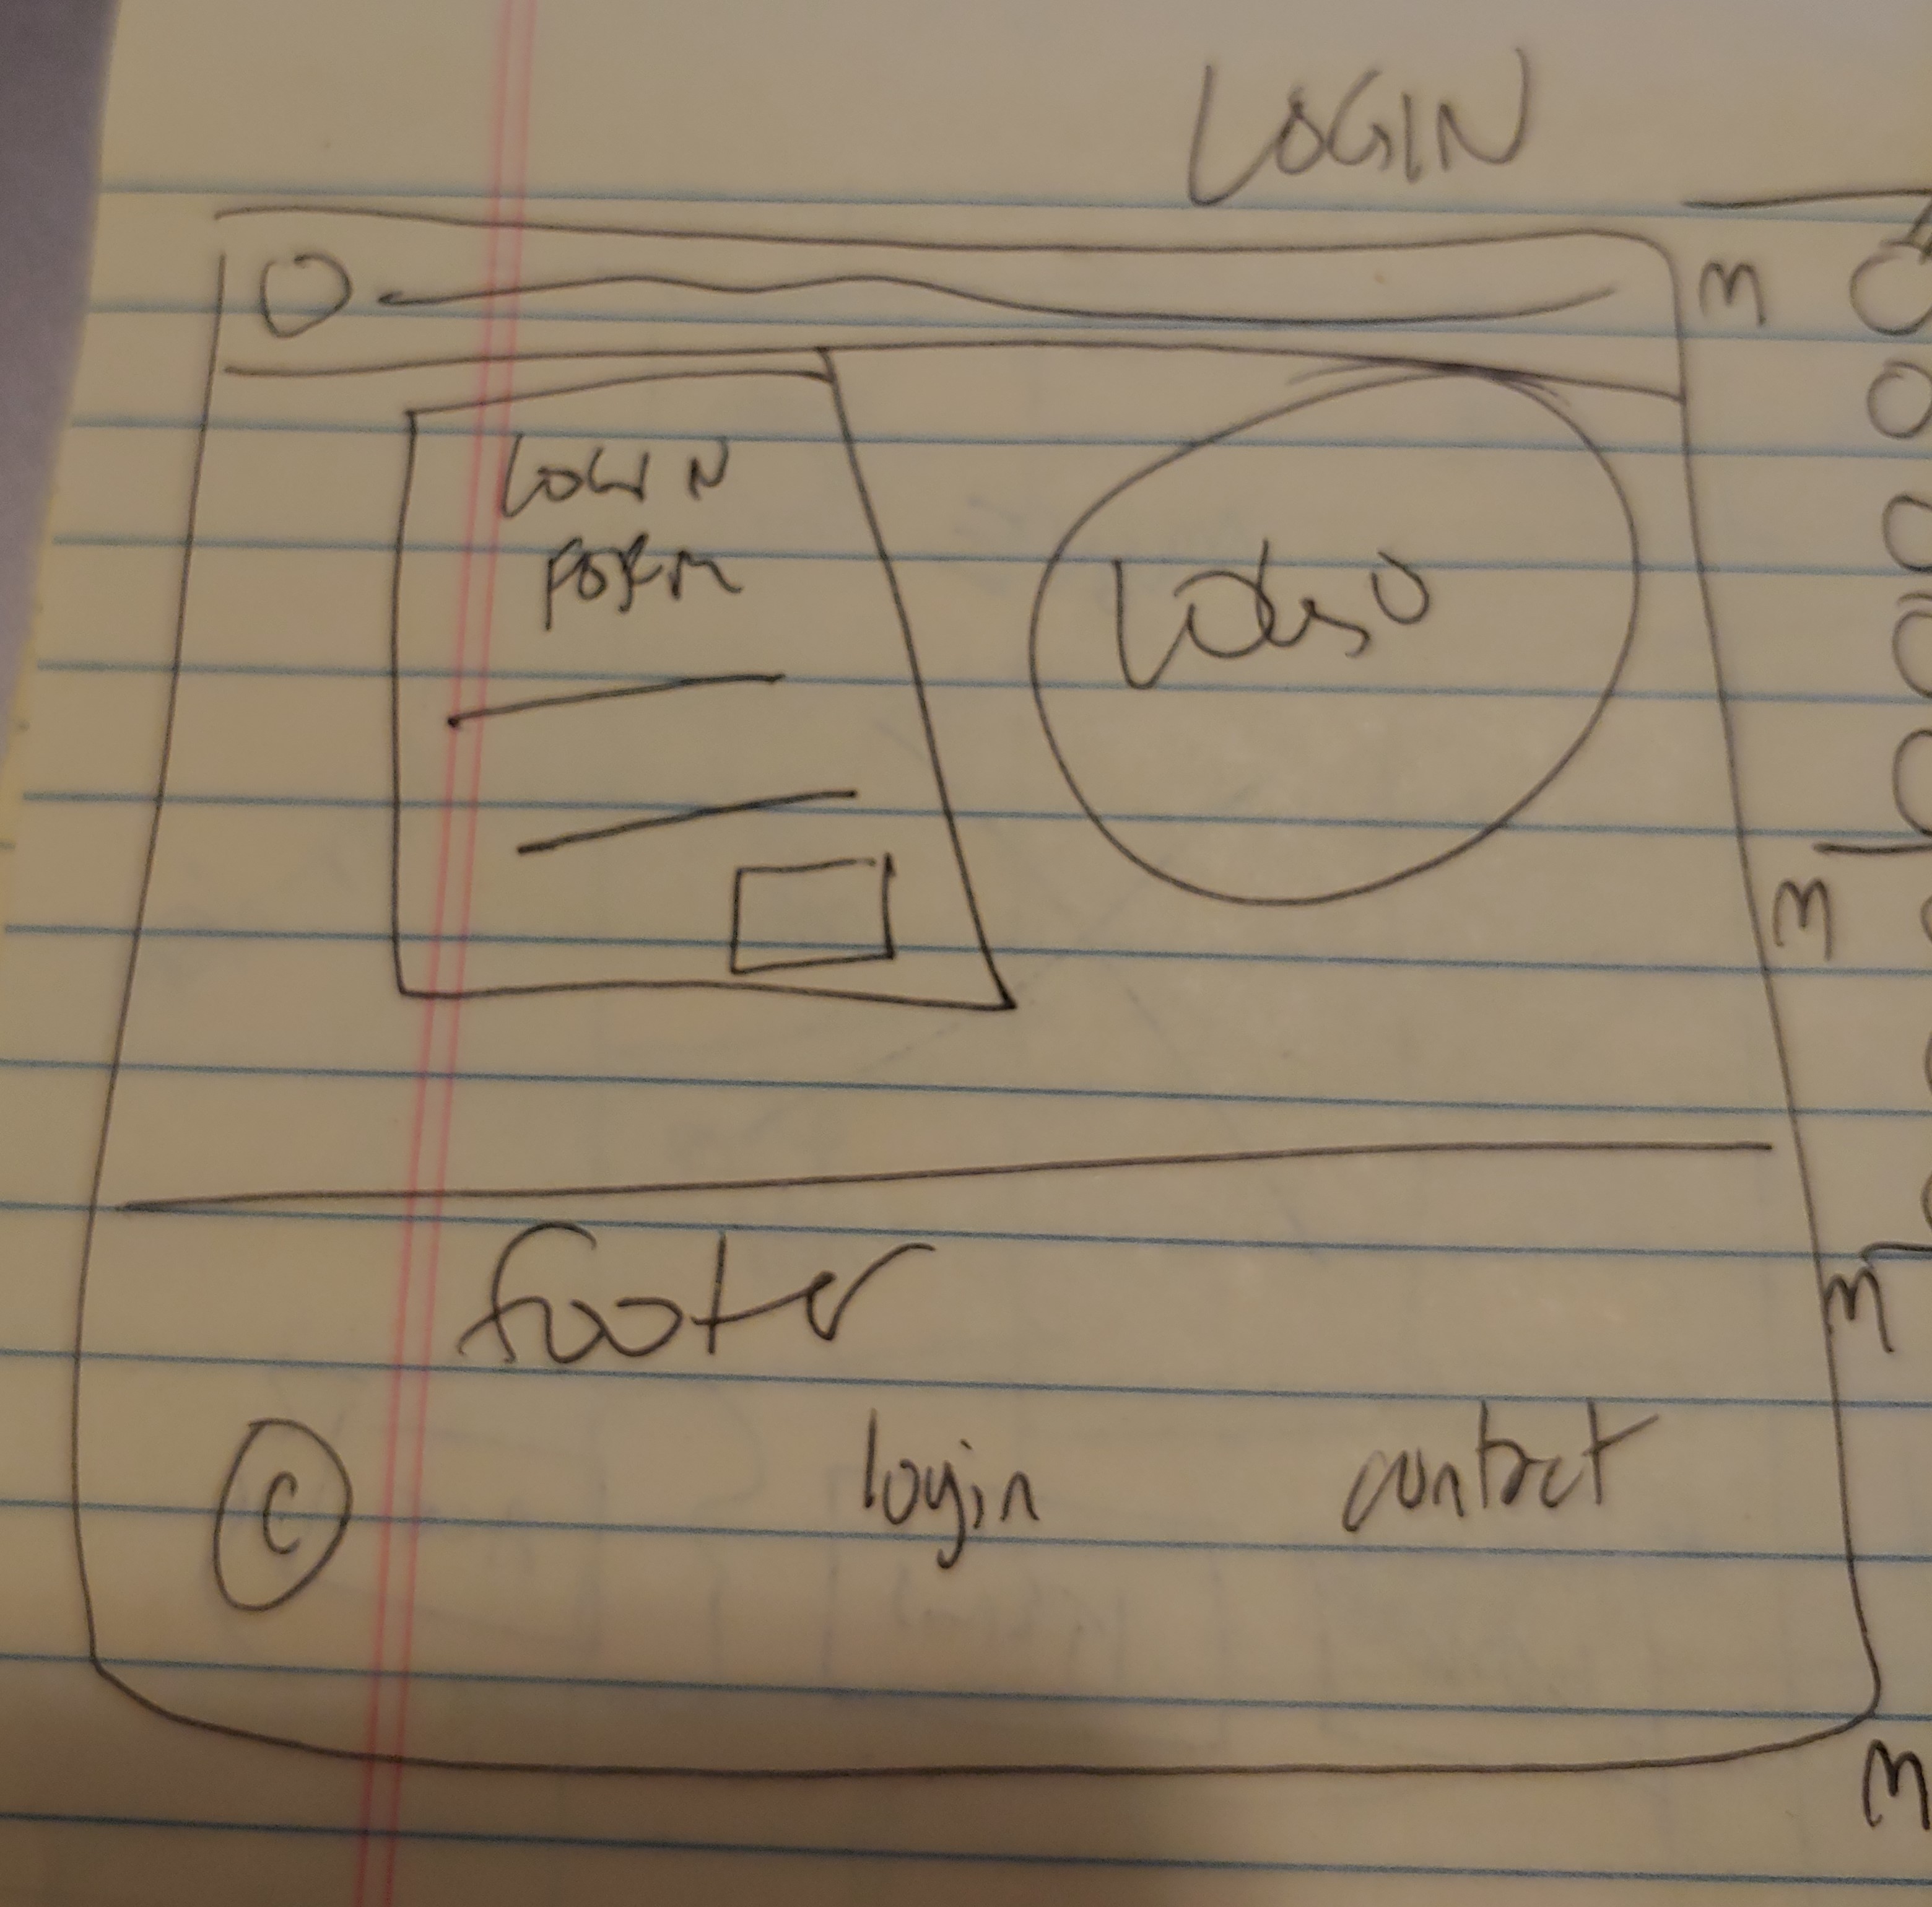 LOGIN
m
LOGIN
FORM
LOGO
m
footer
m
©
login
contact
m